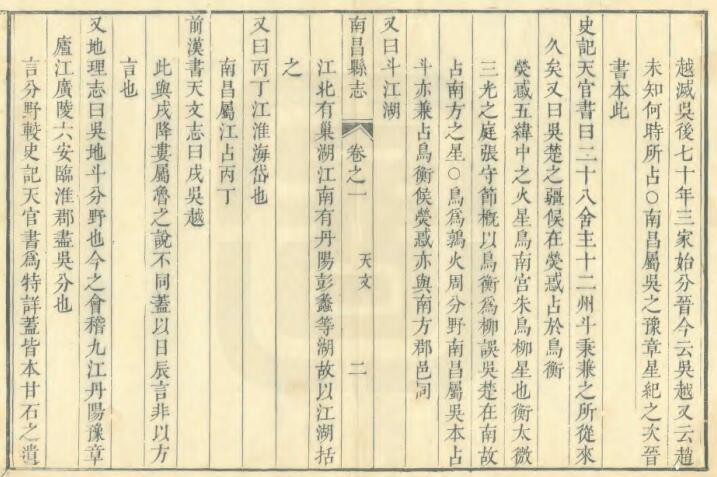 越滅吳後七十年三家始分晉今云吳越又云趙
未知何時所占○南昌屬吳之豫章星紀之次晉
書本此
史記天官書曰二十八舍主十二州斗秉兼之所從來
久矣又曰吳楚之疆候在熒惑占於鳥衡
熒惑五緯中之火星鳥南宮朱鳥柳星也衡太微
三光之庭張守節概以鳥衡為柳誤吳楚在南故
占南方之星○鳥為鶉火周分野南昌屬吳本占
斗亦兼占鳥衡候熒惑亦與南方郡邑同
又曰斗江湖
南昌縣志 卷之一 天文 二
江北有巢湖江南有丹陽彭蠡等湖故以江湖括
之
又曰丙丁江淮海岱也
南昌屬江占丙丁
前漢書天文志曰戌吳越
此與戌降婁屬魯之說不同蓋以日辰言非以方
言也
又地理志曰吳地斗分野也今之會稽九江丹陽豫章
廬江廣陵六安臨淮郡盡吳分也
言分野較史記天官書為特詳蓋皆本甘石之遺